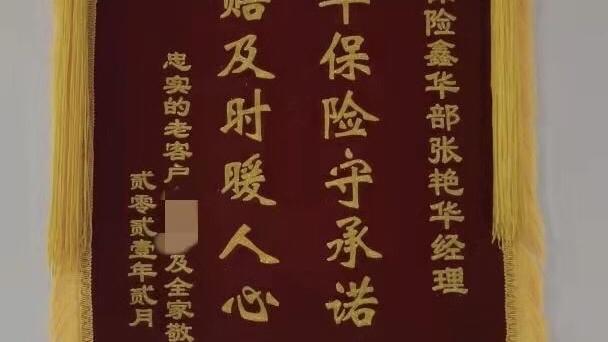 保险鑫华部张艳华经理
华保险守承诺
赔及时暖人心
忠实的老客户
及全家敬
贰零贰壹年贰月